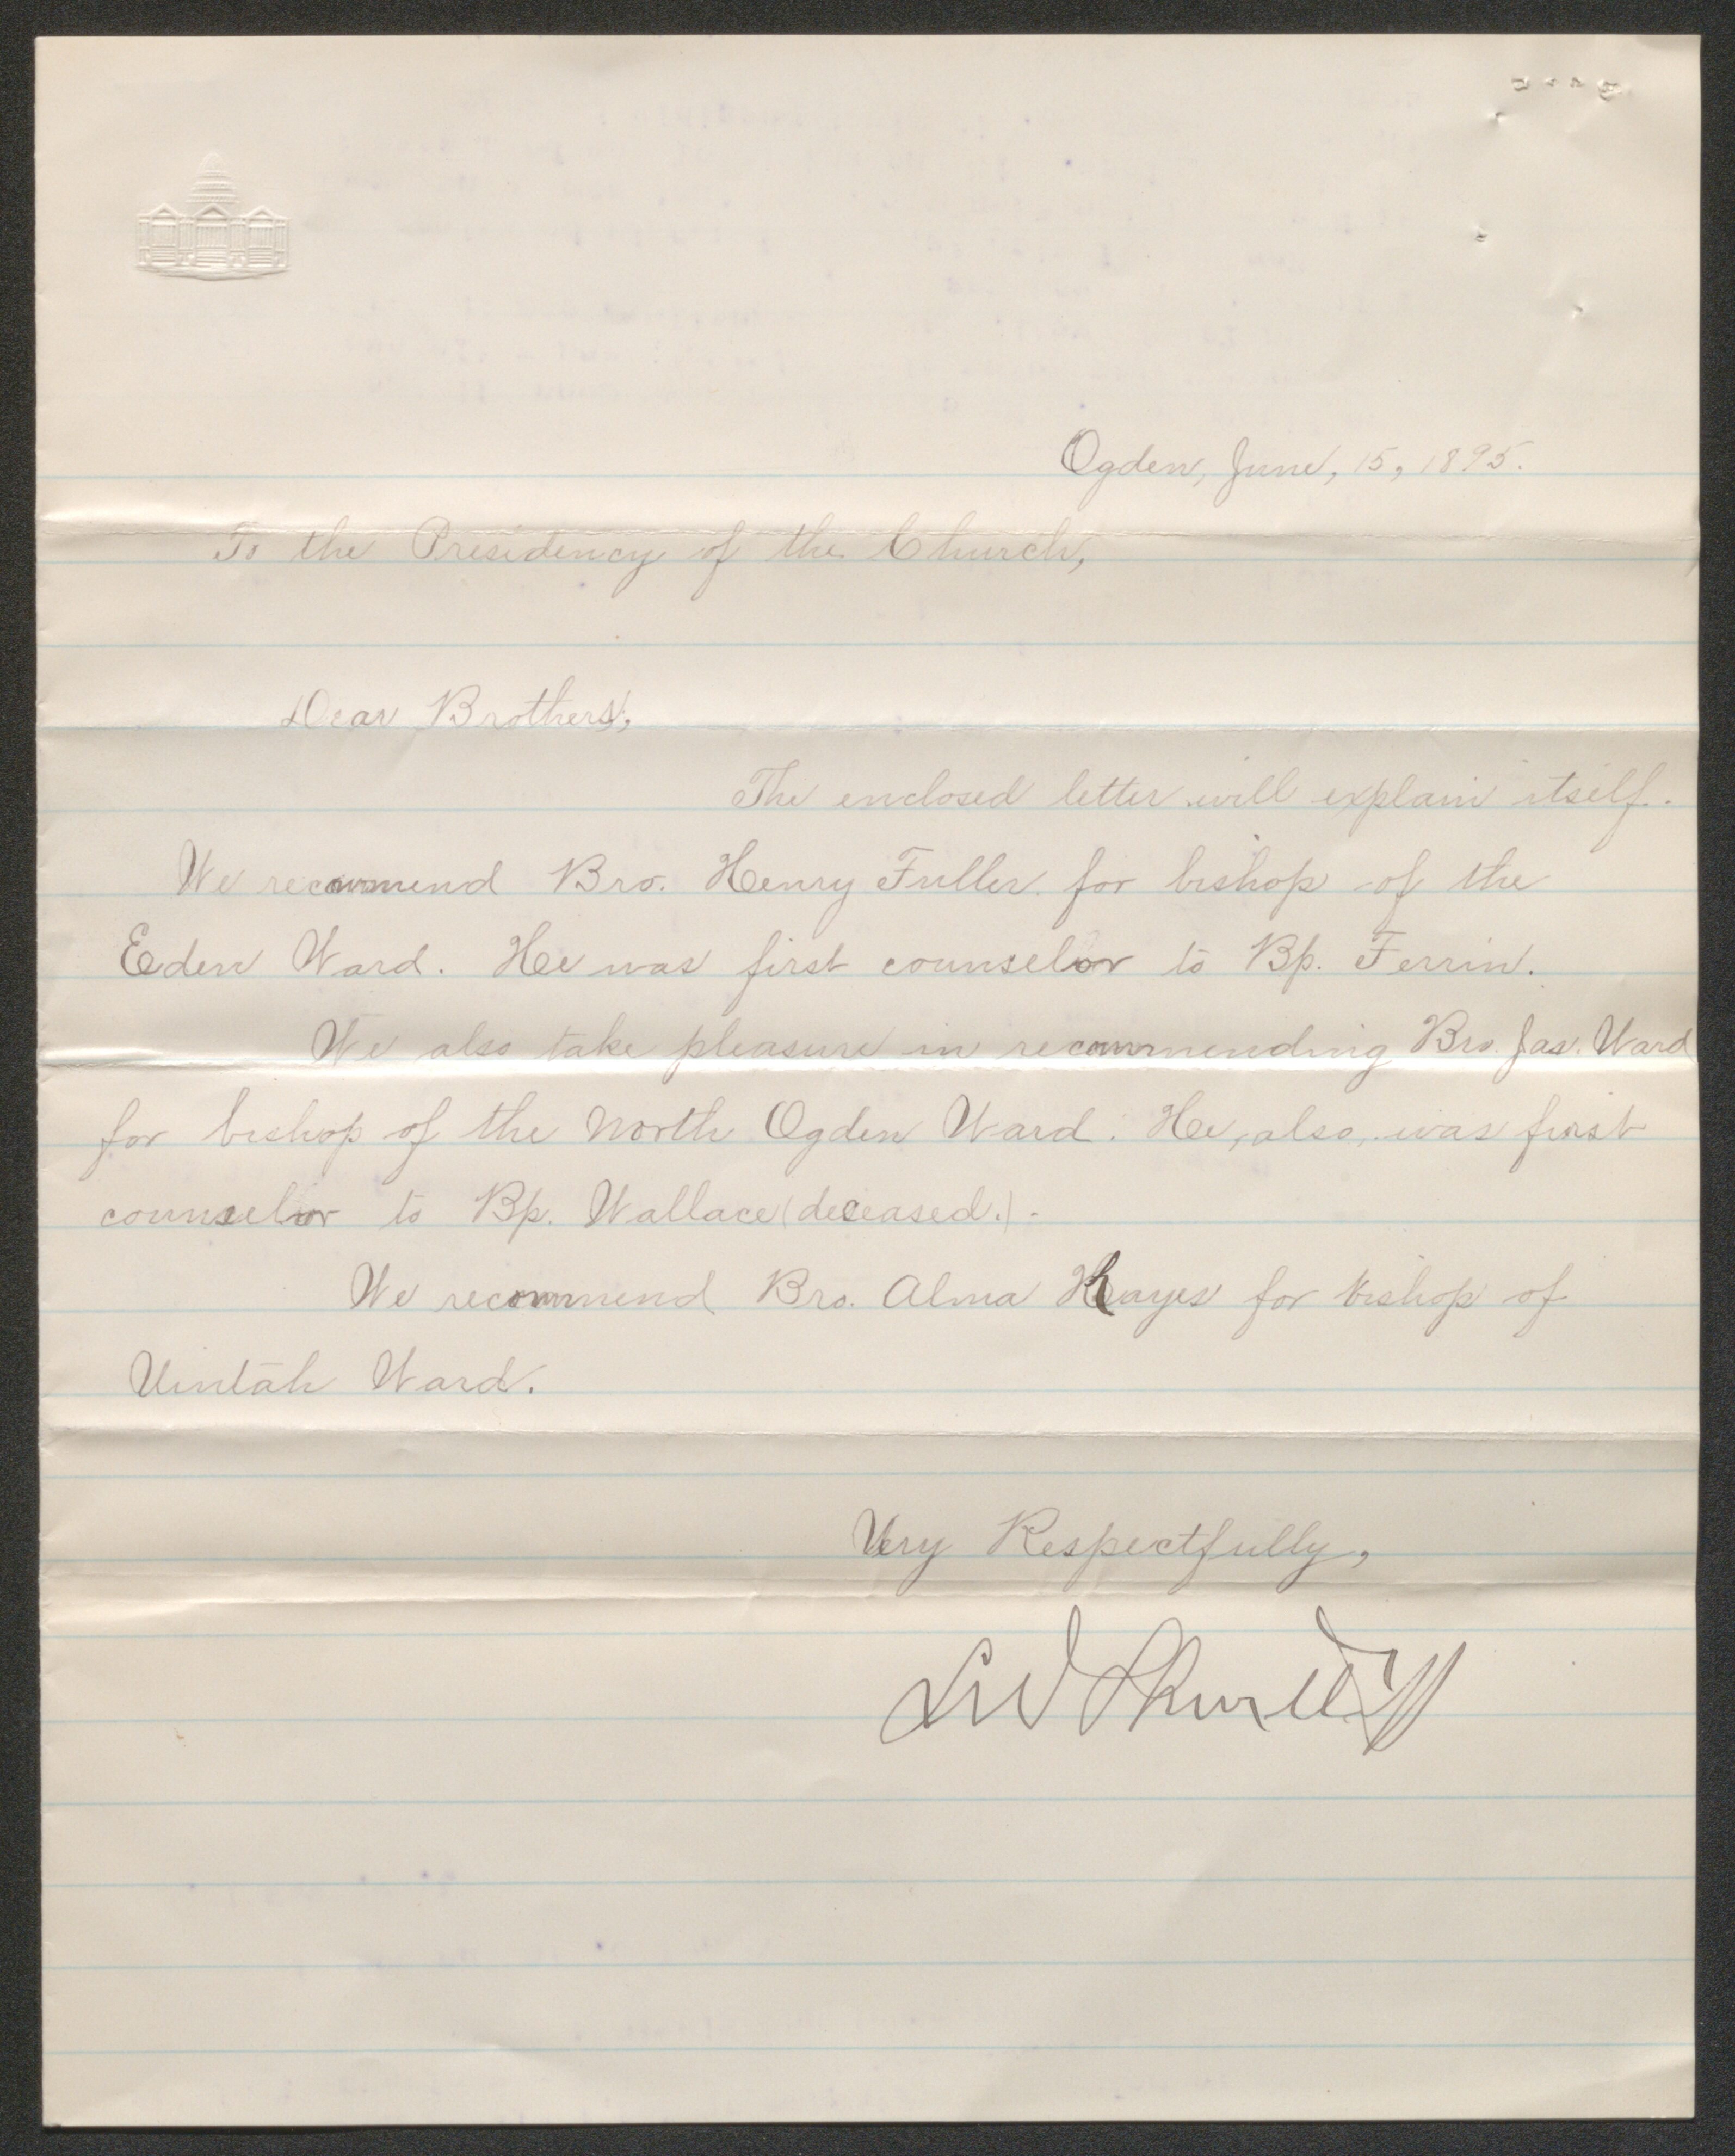 Ogden, June, 15, 1895.
To the Presidency of the Church,
Dear Brothers;
The enclosed letter will explain itself.
We recommend Bro. Henry Fuller for bishop of the
Eden Ward. He was first counselor to Bp. Ferrin.
We also take pleasure in recommending Bro. Jas. Ward
for bishop of the North Ogden Ward. He, also, was first
counselor to Bp. Wallace (deceased.).
We recommend Bro. Alma Keyes for bishop of
Uintah Ward.
Very Respectfully,
L W Shurtliff